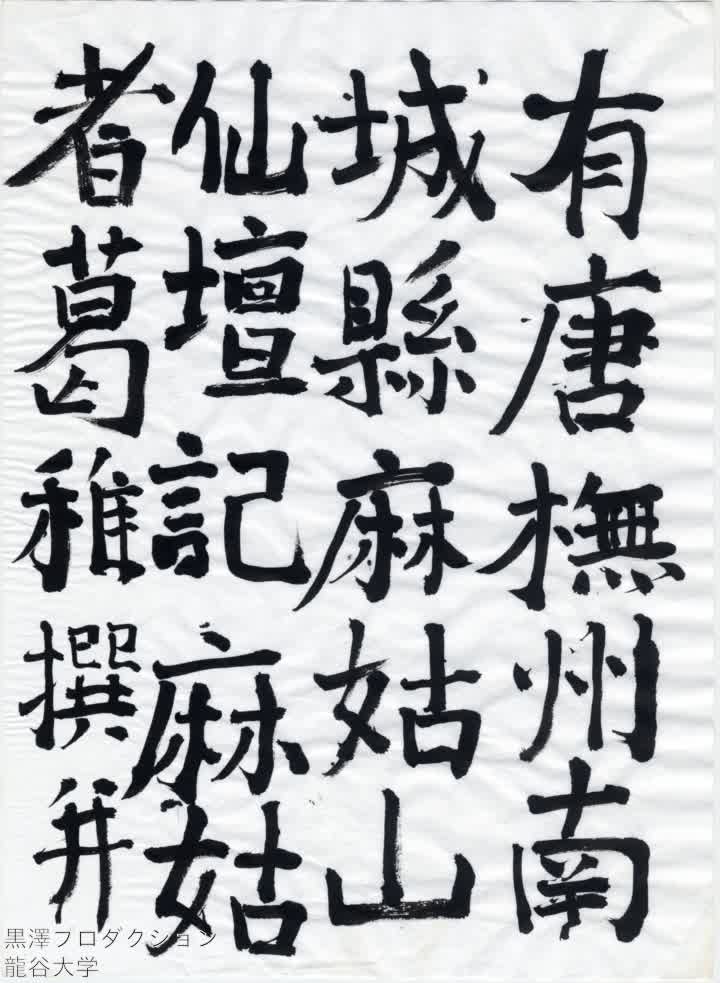 有唐撫州南
城縣麻姑山
仙壇記麻姑
者葛稚撰并
黒澤プロダクション
龍谷大学